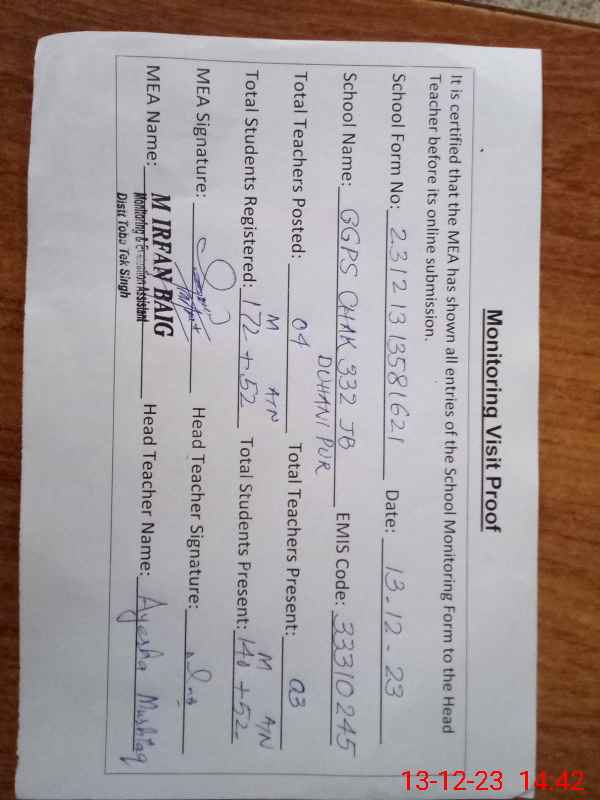 Monitoring Visit Proof
It is certified that the MEA has shown all entries of the School Monitoring Form to the Head
Teacher before its online submission.
School Form No: 23121313581621 Date: 13-12-23
School Name: GGPS CHAK 332 JB EMIS Code: 33310245
DUHANIPUR
Total Teachers Posted: 04 Total Teachers Present: 03
M A/N M A/N
Total Students Registered: 172+52 Total Students Present: 140+52
MEA Signature: Head Teacher Signature:
MEA Name: M IRFAN BAIG Head Teacher Name: Ayesha Mushtaq
Monitoring & Evaluation Assistant
Distt Toba Tek Singh
13-12-23 14:42